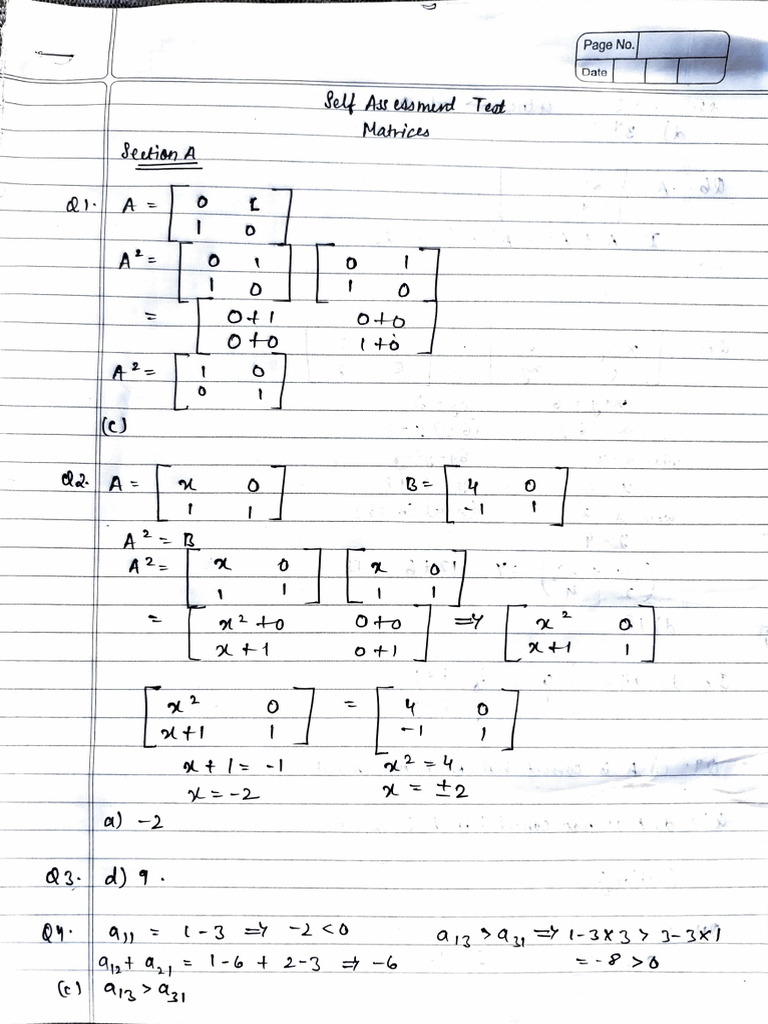 Page No.
Date
Self Assessment Test
Matrices
Section A
Q1. A = [ 0 1
1 0 ]
A² = [ 0 1 [ 0 1
1 0 ] 1 0 ]
= [ 0+1 0+0
0+0 1+0 ]
A² = [ 1 0
0 1 ]
(c)
Q2. A = [ x 0 B = [ 4 0
1 1 ] -1 1 ]
A² = B
A² = [ x 0 [ x 0
1 1 ] 1 1 ]
= [ x²+0 0+0 ⇒ [ x² 0
x+1 0+1 ] x+1 1 ]
[ x² 0 = [ 4 0
x+1 1 ] -1 1 ]
x+1 = -1 x² = 4.
x = -2 x = ±2
a) -2
Q3. d) 9.
Q4. a₁₁ = 1-3 ⇒ -2<0 a₁₃ > a₃₁ ⇒ 1-3×3 > 3-3×1
a₁₂ + a₂₁ = 1-6 + 2-3 ⇒ -6 = -8 > 0
(c) a₁₃ > a₃₁